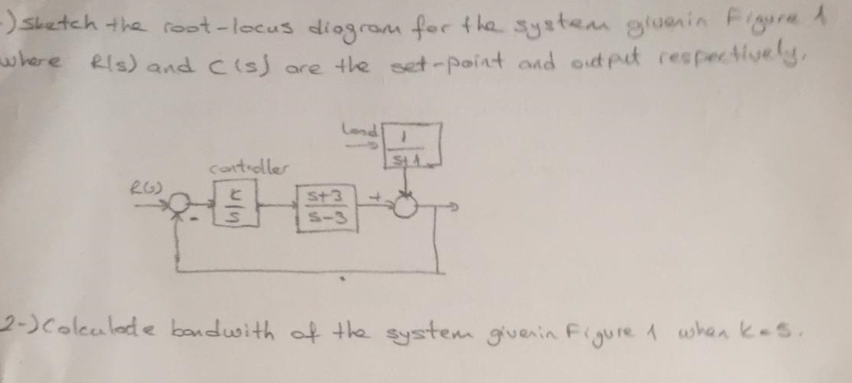 -) Sketch the root-locus diagram for the system givenin Figure 1
where R(s) and C(s) are the set-point and output respectively.
Load
1
s+1
controller
R(s)
K
s
s+3
s-3
+
-
2-) Calculade bandwith of the system givenin Figure 1 when k=5.